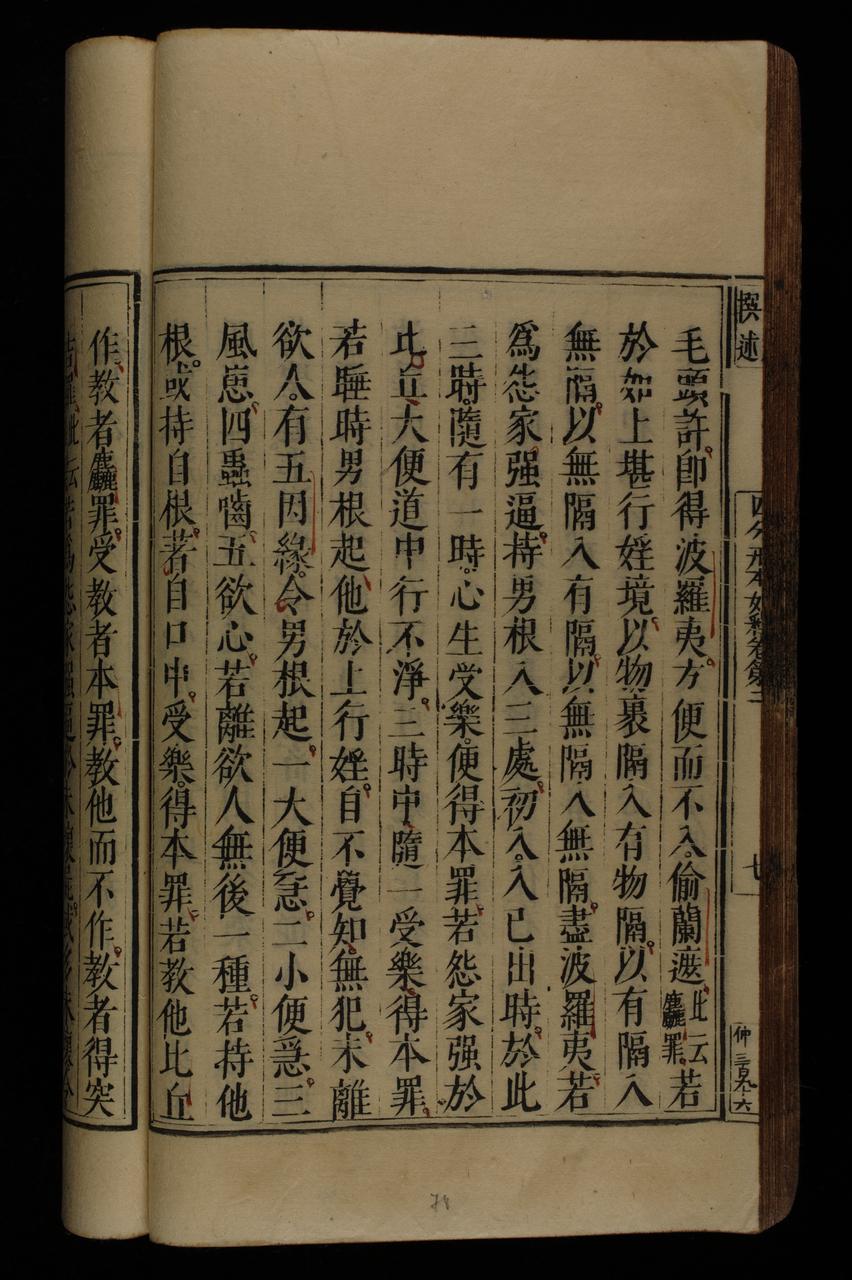 撰述
四分戒本如釋卷第二
七
仲三百九十六
毛頭許即得波羅夷方便而不入偷蘭遮此云麤罪若
於如上堪行婬境以物裹隔入有物隔以有隔入
無隔以無隔入有隔以無隔入無隔盡波羅夷若
為怨家强逼持男根入三處初入入已出時於此
三時隨有一時心生受樂便得本罪若怨家强於
比丘大便道中行不淨三時中隨一受樂得本罪
若睡時男根起他於上行婬自不覺知無犯未離
欲人有五因緣令男根起一大便急二小便急三
風患四蟲嚙五欲心若離欲人無後一種若持他
根或持自根著自口中受樂得本罪若教他比丘
作教者麤罪受教者本罪教他而不作教者得突
吉羅此云
78